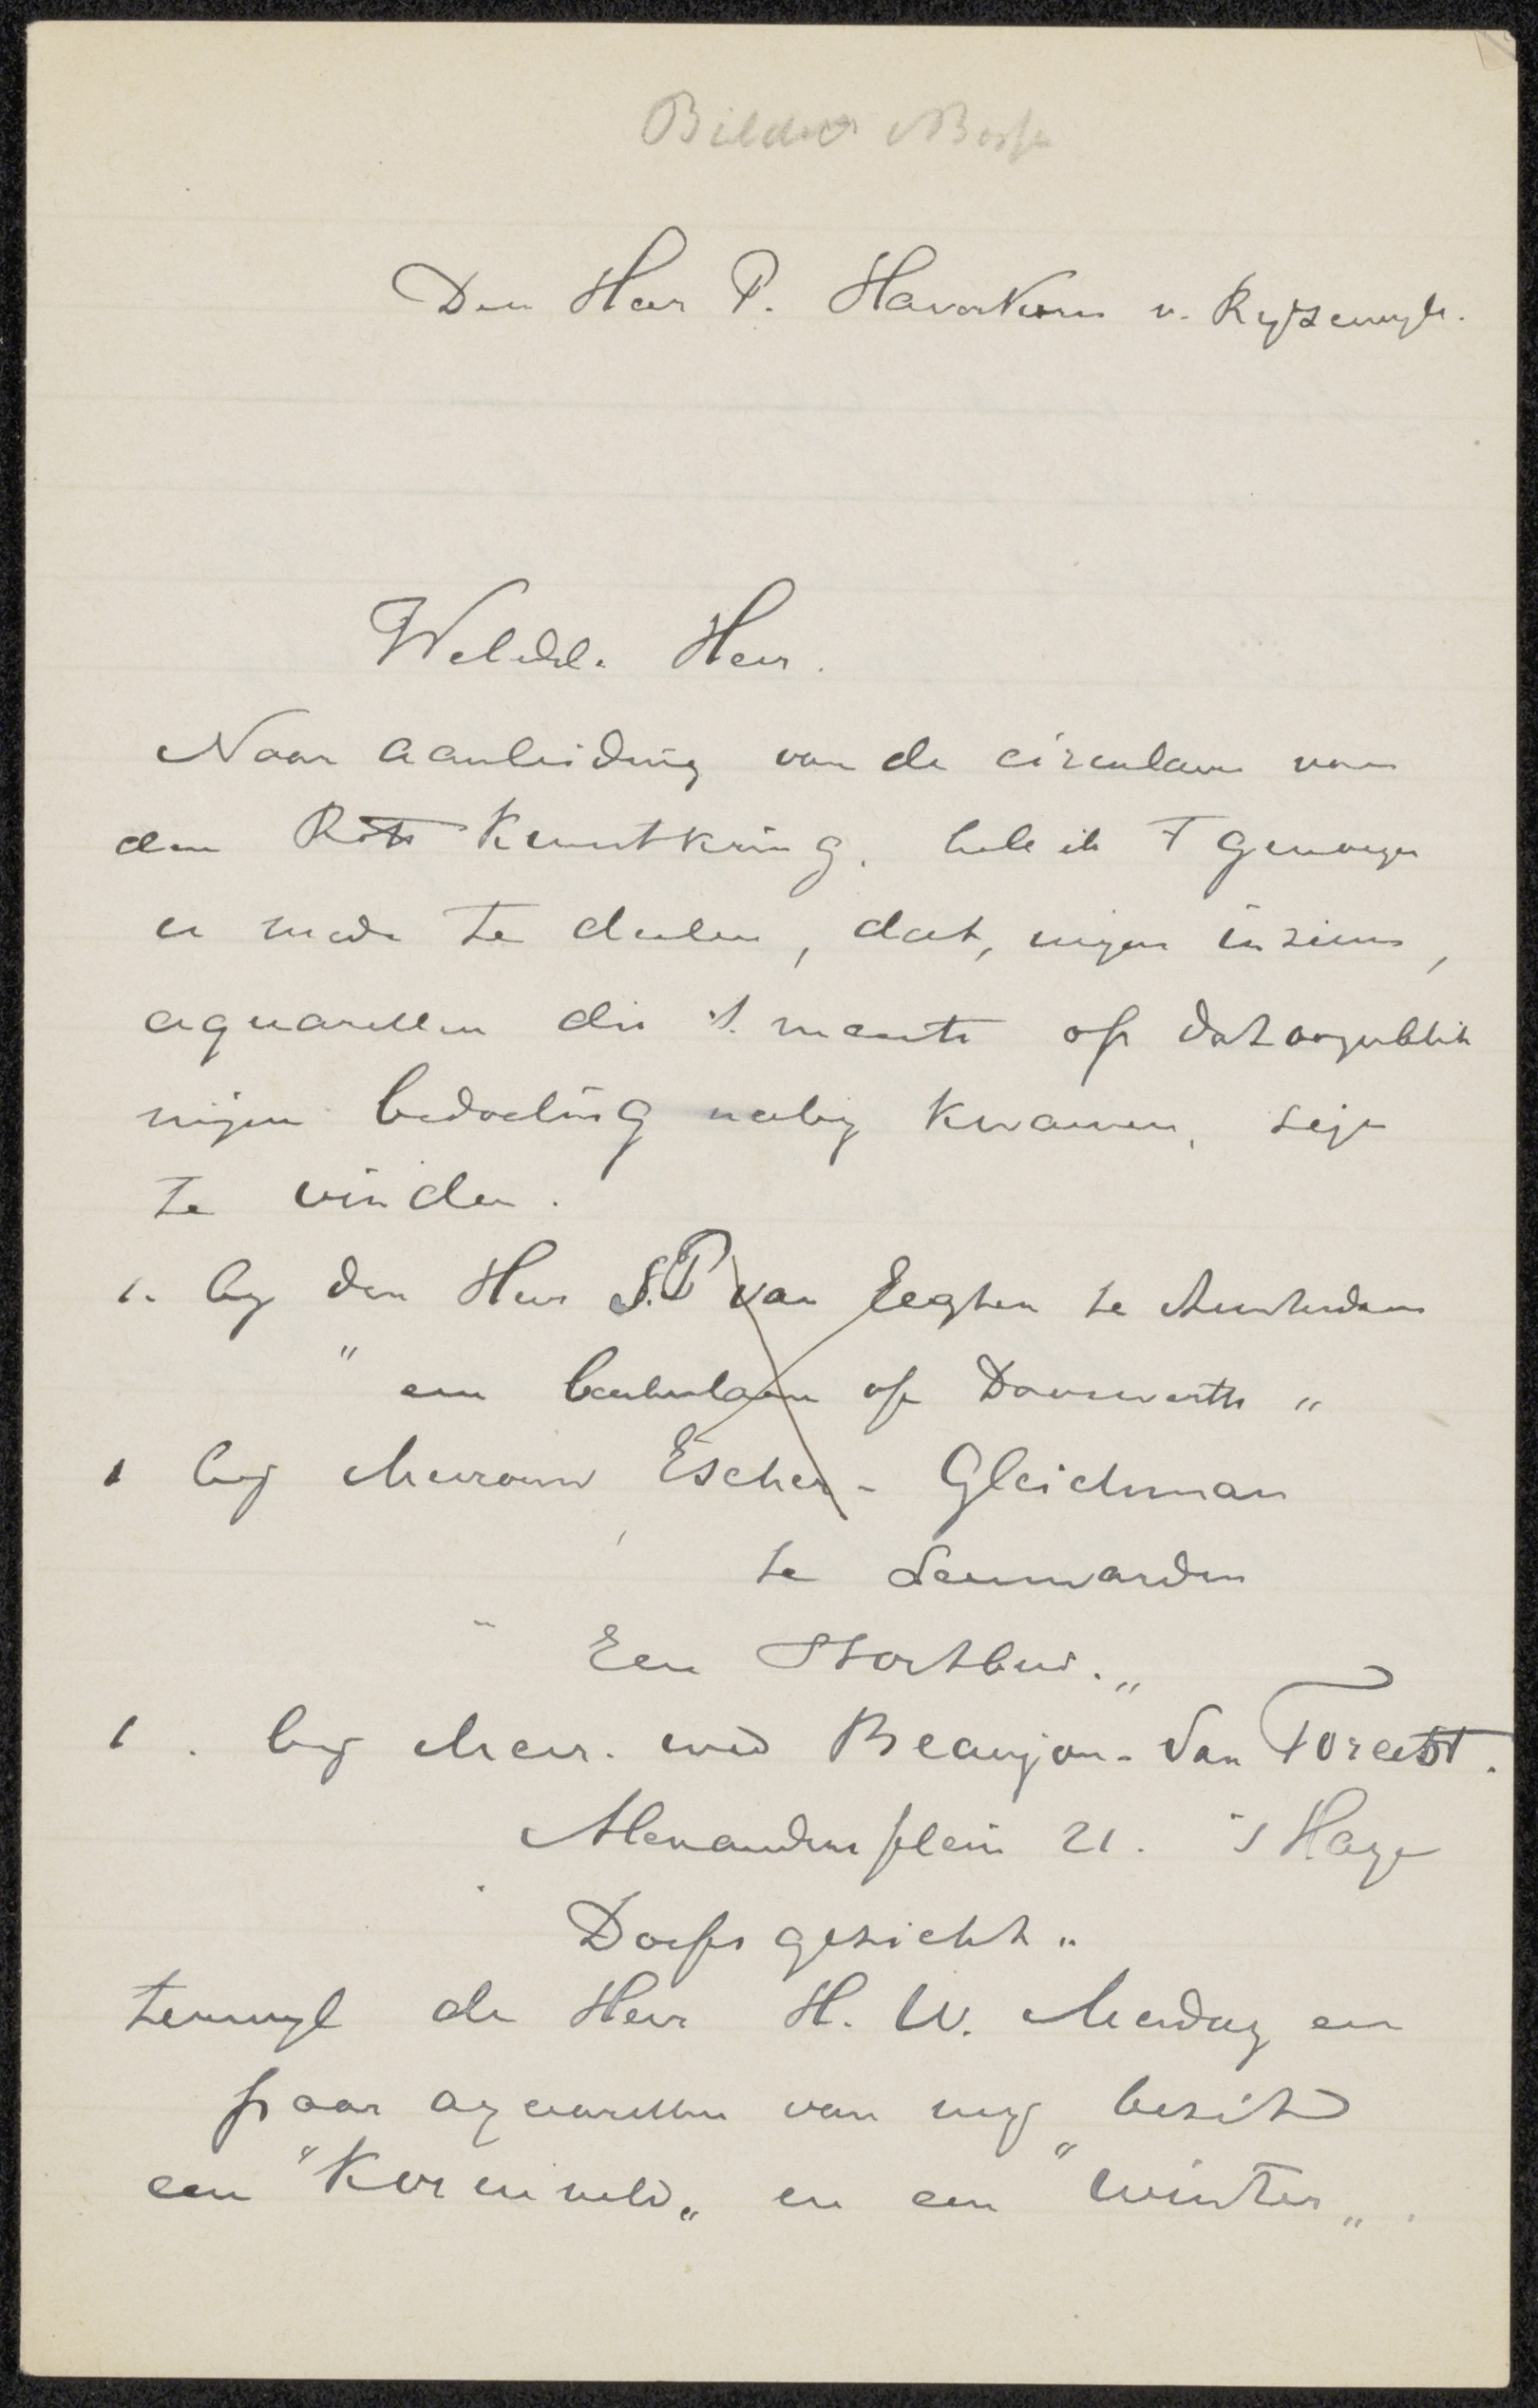 Bilders Bosse
Den Heer P. Haverkorn v. Rijsewijk.
Weledel. Heer.
Naar aanleiding van de circulaire van
den Rott Kunstkring. heb ik 't genoegen
u mede te deelen, dat, mijns inziens,
aquarellen die 't meeste op dat oogenblik
mijne bedoeling nabij kwamen, zijn
te vinden.
1. bij den Heer S.P van Eeghen te Amsterdam
" een beukelaan op Doorwerth "
1 bij Mevrouw Escher - Gleichman
te Leeuwarden
" Een Stortbui. „
1. bij Mevr. wed Beaujon - van Foreest.
Alexanderplein 21. 's Hage
Dorpsgezicht „
terwijl de Heer H. W. Mesdag een
paar aquarellen van mij bezit
een "Korenveld„ en een "winter„.